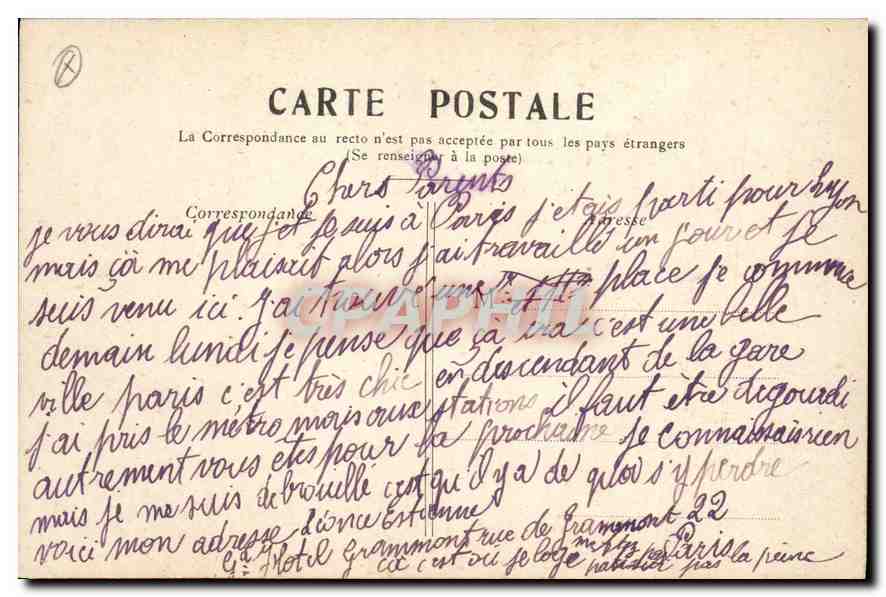 CARTE POSTALE
La Correspondance au recto n'est pas acceptée par tous les pays étrangers
(Se renseigner à la poste)
Chers Parents
Correspondance
Adresse
je vous dirai que je suis à Paris j'etais parti pour Lyon
mais çà me plaisait alors j'ai travaillé un jour et je
suis venu ici. J'ai trouvé une place je commence
demain lundi je pense que çà ira c'est une belle
ville paris c'est très chic en descendant de la gare
j'ai pris le métro mais aux stations il faut être degourdi
autrement vous etes pour la prochaine je connaissais rien
mais je me suis debrouillé c'est qu'il y a de quoi s'y perdre
voici mon adresse Léonce Estienne
Gd Hotel Grammont rue de Grammont 22
Paris
ça c'est ou je loge pas la peine
CPAPHIL